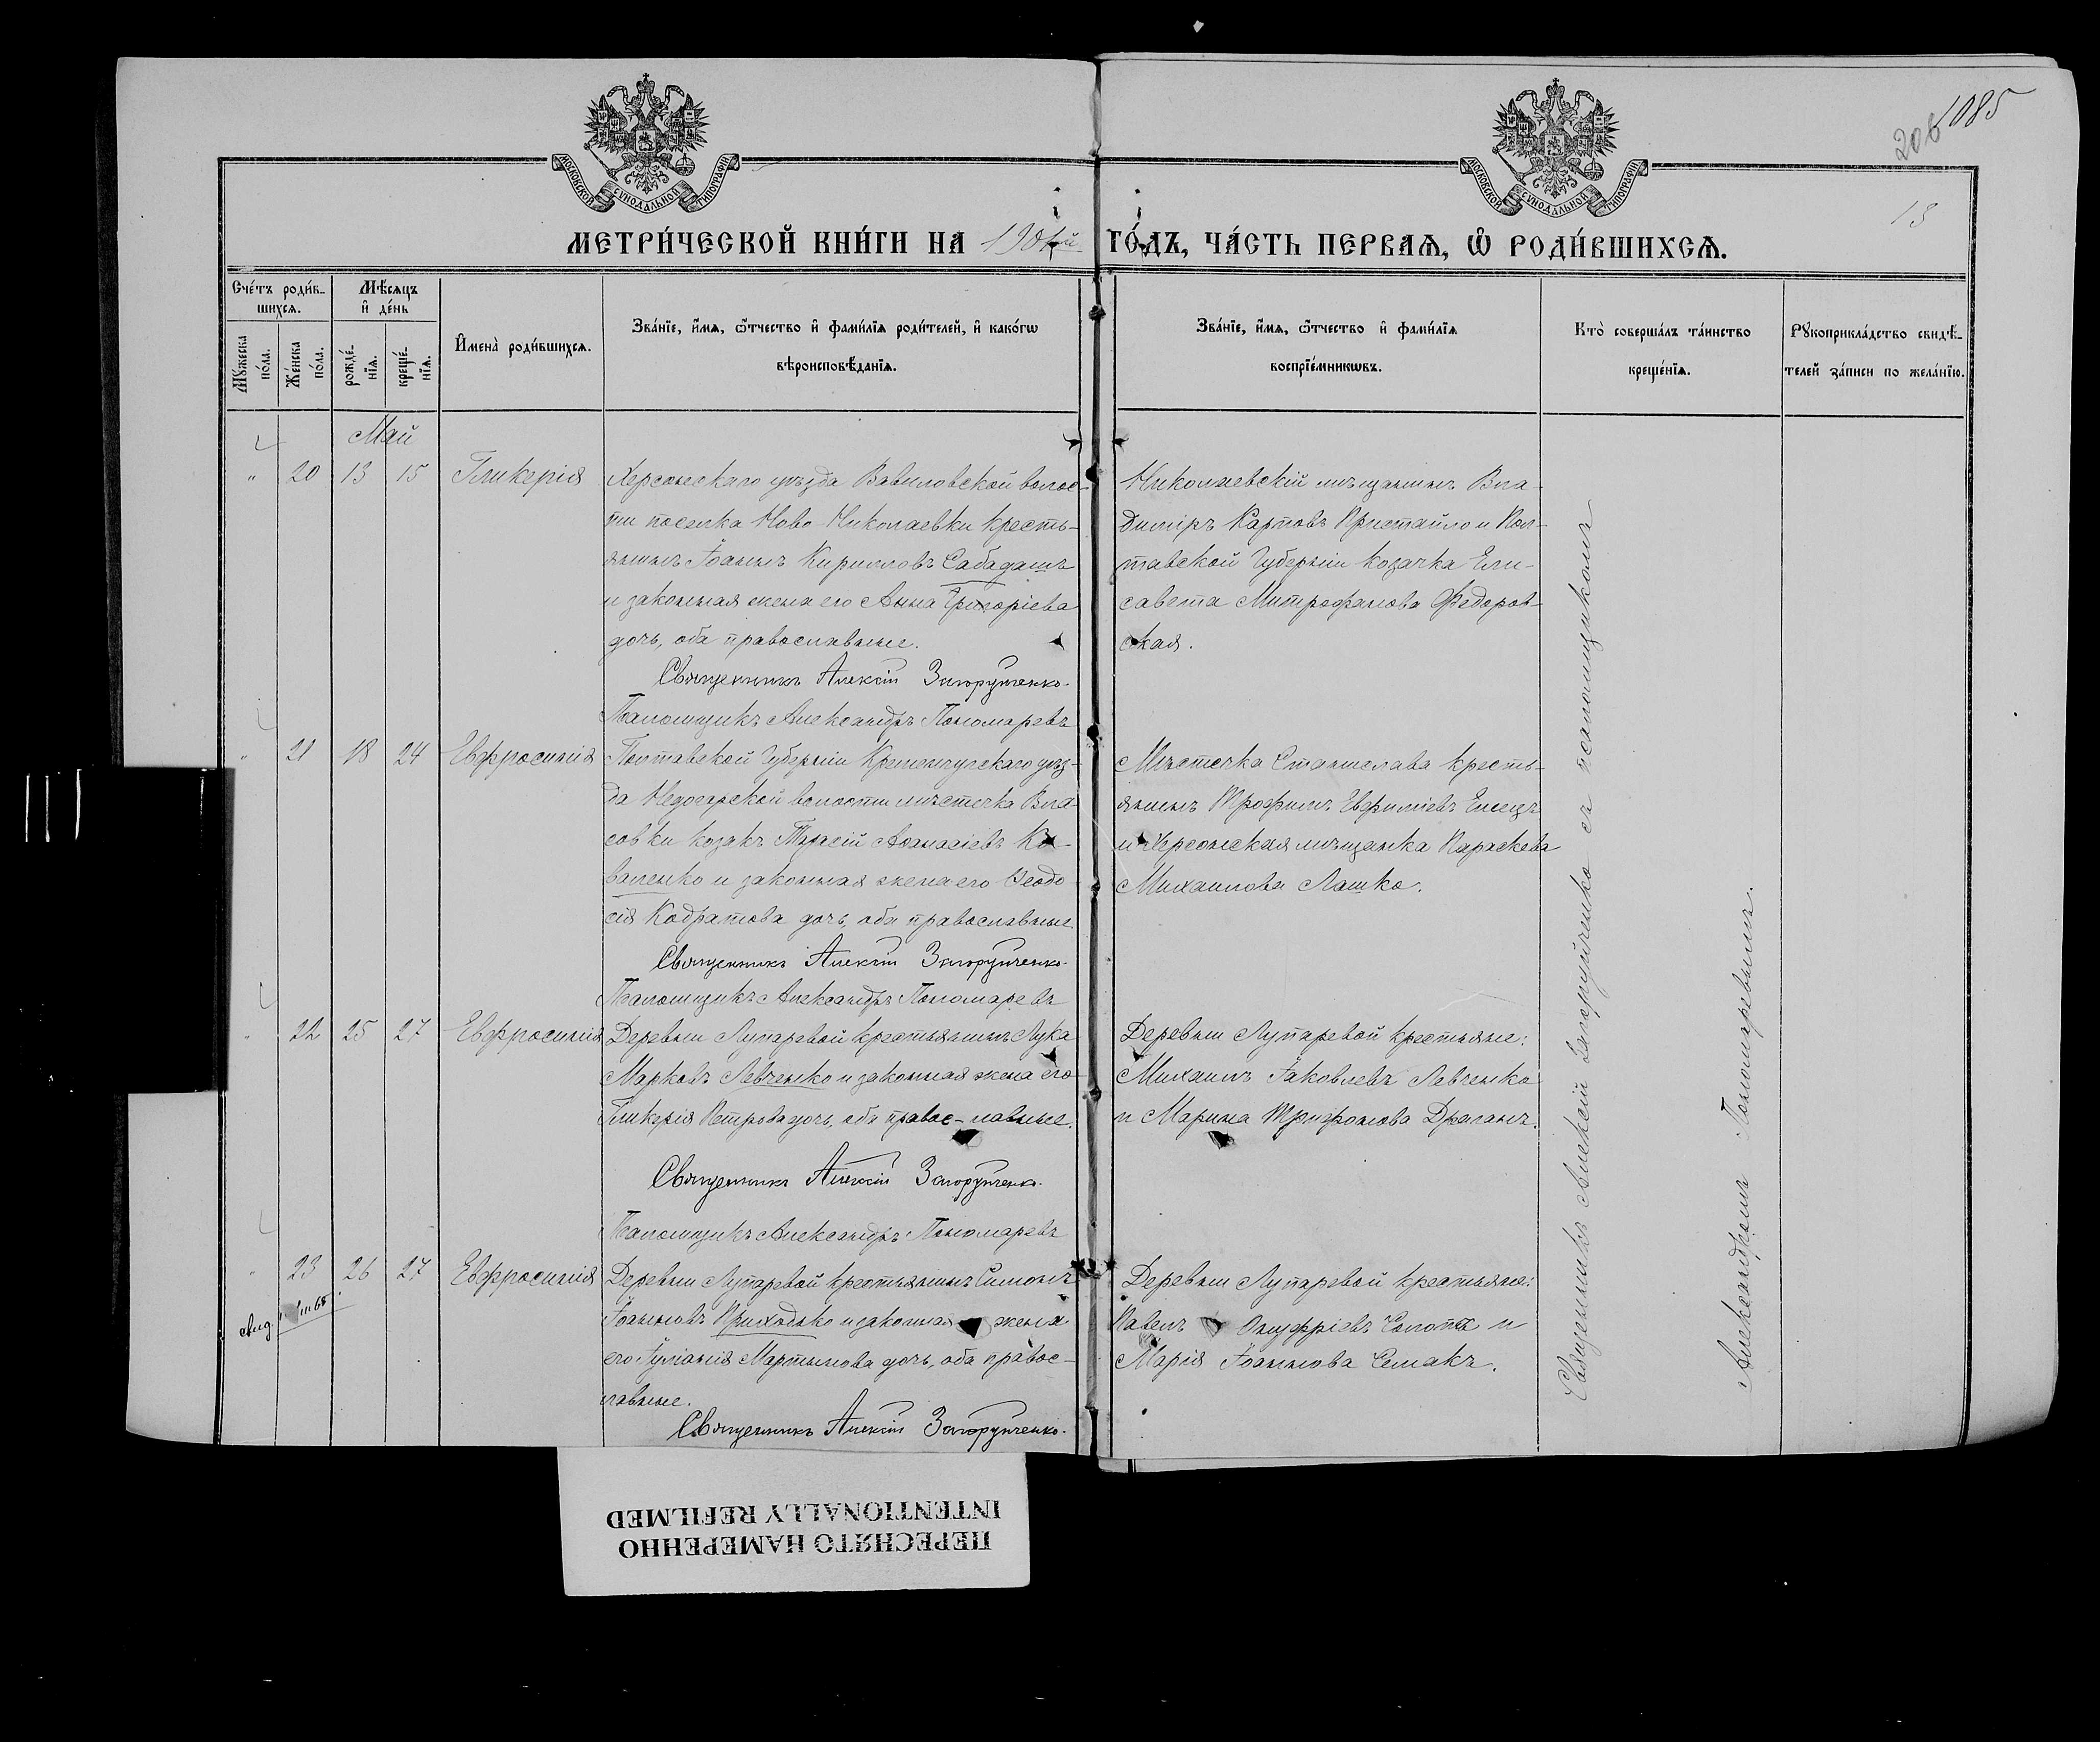 1085
206
13
МОСКОВСКОЙ СѴНОДАЛЬНОЙ ТИПОГРАФІИ
МОСКОВСКОЙ СѴНОДАЛЬНОЙ ТИПОГРАФІИ
МЕТРИ́ЧЕСКОЙ КНИ́ГИ НА 1901й ГО́ДЪ, ЧА́СТЬ ПЕРВАѦ, Ѡ҆ РОДИ́ВШИХСѦ.
Сче́тъ роди́в-
шихсѧ.
Мѣ́сяцъ
и҆ де́нь
Мꙋ́жеска
по́ла.
Же́нска
по́ла.
рожде́-
нїѧ.
креще́-
нїѧ.
И҆мена̀ роди́вшихсѧ.
Зва́нїе, и҆́мѧ, ѻ҆́тчество и҆ фами́лїѧ роди́телей, и҆ како́гѡ
вѣроисповѣ́данїѧ.
Зва́нїе, и҆́мѧ, ѻ҆́тчество и҆ фами́лїѧ
воспрїе́мникѡвъ.
Кто̀ соверша́лъ та́инство
креще́нїѧ.
Рꙋкоприкла́дство свидѣ́-
телей за́писи по жела́нїю.
Май
" 20 13 15 Гликерія
Херсонскаго уѣзда Вавиловской волос-
ти поселка Ново-Николаевки кресть-
янинъ Іоаннъ Кирилловъ Сабадашъ
и законная жена его Анна Григоріева
дочь, оба православные.
Священникъ Алексій Загоруйченко.
Псаломщикъ Александръ Пономаревъ
Николаевскій мѣщанинъ Вла-
димiръ Карповъ Пристайло и Пол-
тавской Губерніи козачка Ели-
савета Митрофанова Федоров-
ская.
" 21 18 24 Евфросинія
Полтавской Губерніи Кременчугскаго уѣз-
да Недогарской волости мѣстечка Вла-
совки козакъ Аѳанасіевъ Ко-
валенко и законная жена его Ѳеодо-
сія Кодратова дочь, оба православные
Священникъ Алексій Загоруйченко.
Псаломщикъ Александръ Пономаревъ
Мѣстечка Станислава кресть-
янинъ Трофимъ Евфиміевъ Елецъ
и Херсонская мѣщанка Параскева
Михаилова Лашко.
" 22 25 27 Евфросинія
Деревни Лупаревой крестьянинъ Лука
Марковъ Левченко и законная жена его
Гликерія Петрова дочь, оба правос-лавные.
Священникъ Алексій Загоруйченко.
Псаломщикъ Александръ Пономаревъ
Деревни Лупаревой крестьяне:
Михаилъ Іаковлевъ Левченко
и Марина Трифонова Драганъ.
" 23 26 27 Евфросинія
свид.
Деревни Лупаревой крестьянинъ Симонъ
Іоанновъ Приходько и законная жена
его Іуліанія Мартынова дочь, оба правос-
лавные.
Священникъ Алексій Загоруйченко.
Деревни Лупаревой крестьяне:
Павелъ Онуфріевъ и
Марія Іоаннова Семакъ.
Священникъ Алексій Загоруйченко съ псаломщикомъ
Александромъ Пономаревымъ.
ПЕРЕСНЯТО НАМЕРЕННО
INTENTIONALLY REFILMED